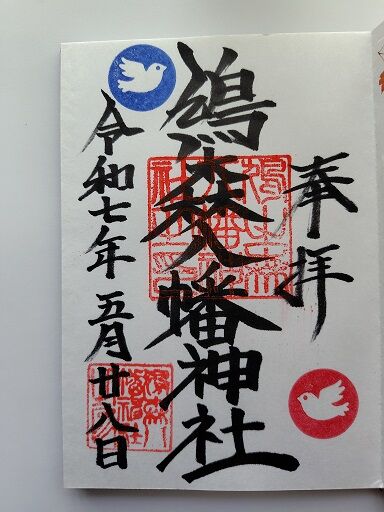 奉拝
鳩森八幡神社
令和七年五月廿八日